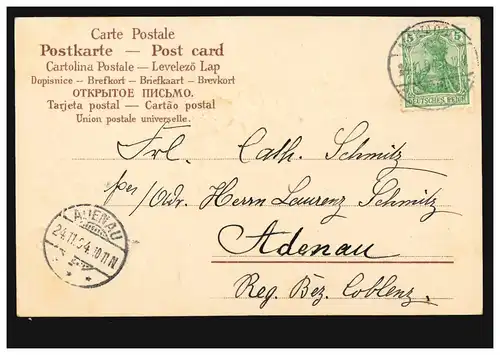 Carte Postale
Postkarte — Post card
Cartolina Postale — Levelező Lap
Dopisnice — Brefkort — Briefkaart — Brevkort
ОТКРЫТОЕ ПИСЬМО.
Tarjeta postal — Cartão postal
Union postale universelle.
5 5
DEUTSCHES REICH
Frl. Cath. Schmitz
per/Adr. Herrn Laurenz Schmitz
Adenau
Reg. Bez. Coblenz.
ADENAU
24.11.04.10-11.N
* *